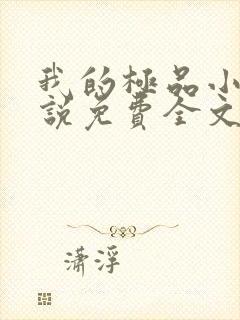 我的極品小
說免費全文
瀟浮